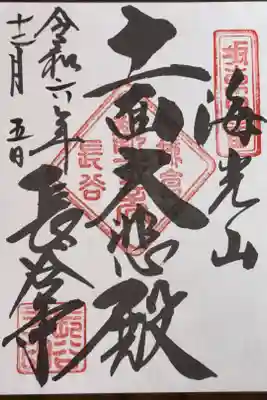 海光山
十一面大悲殿
鎌倉
長谷
長谷寺
令和六年
十二月五日